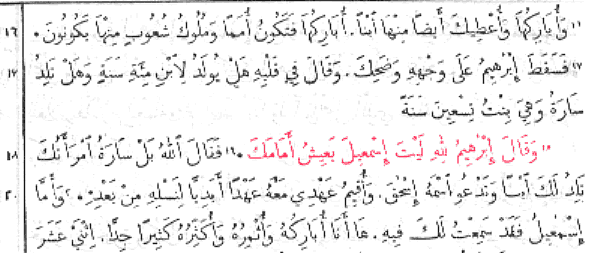 ١٦ ١٦ وَأُبَارِكُهَا وَأُعْطِيكَ أَيْضًا مِنْهَا ٱبْنًا. أُبَارِكُهَا فَتَكُونُ أُمَمًا وَمُلُوكُ شُعُوبٍ مِنْهَا يَكُونُونَ.
١٧ ١٧ فَسَقَطَ إِبْرٰهِيمُ عَلَى وَجْهِهِ وَضَحِكَ. وَقَالَ فِي قَلْبِهِ هَلْ يُولَدُ لِٱبْنِ مِئَةِ سَنَةٍ وَهَلْ تَلِدُ
سَارَةُ وَهِيَ بِنْتُ تِسْعِينَ سَنَةً
١٨ ١٨ وَقَالَ إِبْرٰهِيمُ لِلهِ لَيْتَ إِسْمٰعِيلَ يَعِيشُ أَمَامَكَ. ١٩ فَقَالَ ٱللهُ بَلْ سَارَةُ ٱمْرَأَتُكَ
تَلِدُ لَكَ ٱبْنًا وَتَدْعُو ٱسْمَهُ إِسْحٰقَ. وَأُقِيمُ عَهْدِي مَعَهُ عَهْدًا أَبَدِيًّا لِنَسْلِهِ مِنْ بَعْدِهِ. ٢٠ وَأَمَّا ٢٠
إِسْمٰعِيلُ فَقَدْ سَمِعْتُ لَكَ فِيهِ. هَا أَنَا أُبَارِكُهُ وَأُثْمِرُهُ وَأُكَثِّرُهُ كَثِيرًا جِدًّا. اِثْنَيْ عَشَرَ